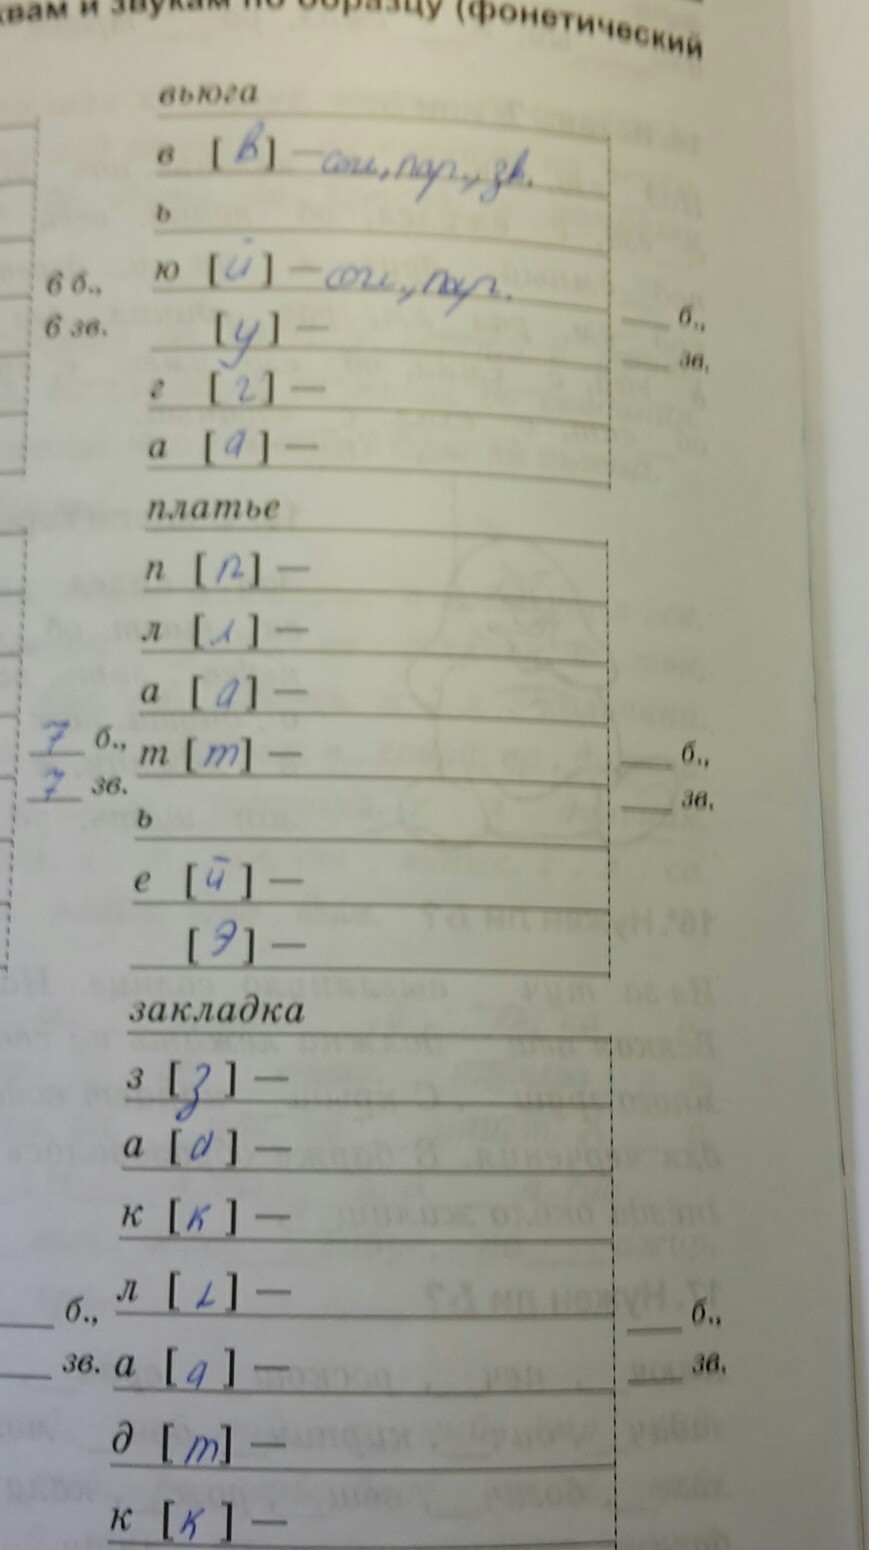 квам и звукам по образцу (фонетический
вьюга
в [в] — согл., пар., зв.
ь
6 б., ю [й] — согл., пар.
6 зв. [у] — ___ б.,
___ зв.
г [г] —
а [а] —
платье
п [п] —
л [л] —
а [а] —
7 б., т [т] — ___ б.,
7 зв. ___ зв.
ь
е [й] —
[э] —
закладка
з [з] —
а [а] —
к [к] —
___ б., л [л] — ___ б.,
___ зв. а [а] — ___ зв.
д [т] —
к [к] —